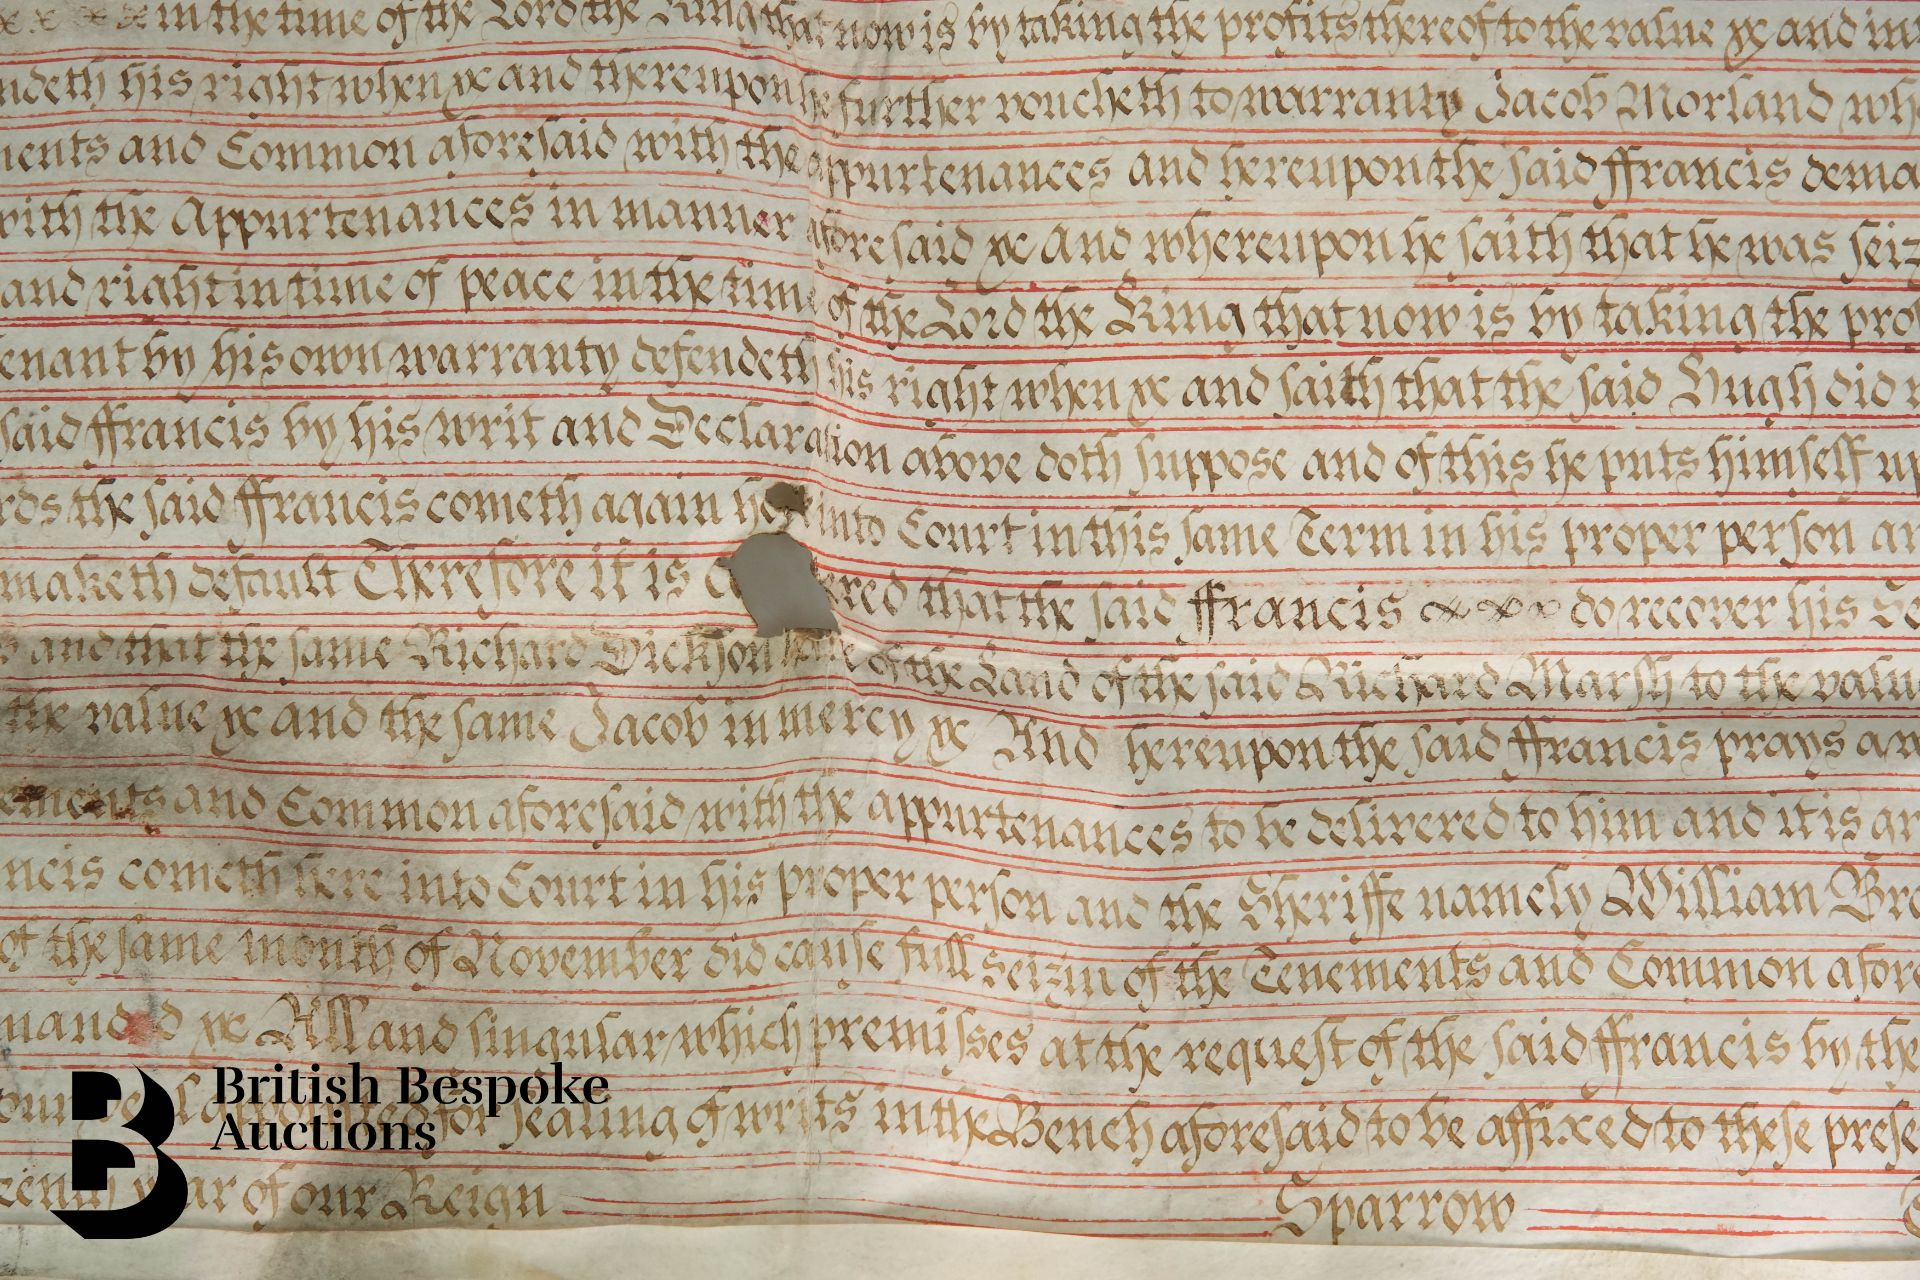 in the time of the Lord the King that now is by taking the profits thereof to the value &c and in
ndeth his right when &c and thereupon he further voucheth to warranty Jacob Morland wh
ments and Common aforesaid with the appurtenances and hereupon the said ffrancis dema
with the Appurtenances in manner aforesaid &c And whereupon he saith that he was seiz
and right in time of peace in the time of the Lord the King that now is by taking the pro
enant by his own warranty defendeth his right when &c and saith that the said Hugh did n
said ffrancis by his writ and Declaration above doth suppose and of this he puts himself up
rds the said ffrancis cometh again he into Court in this same Term in his proper person an
maketh default Therefore it is c ered that the said ffrancis do recover his Se
and that the same Richard Dickson have of the Land of the said Richard Marsh to the valu
the value &c and the same Jacob in mercy &c And hereupon the said ffrancis prays a w
ements and Common aforesaid with the appurtenances to be delivered to him and it is gr
ncis cometh here into Court in his proper person and the Sheriffe namely William Bro
of the same month of November did cause full seizin of the Tenements and Common afore
manded &c All and singular which premisses at the request of the said ffrancis by the
our for sealing of writs in the Bench aforesaid to be affixed to these prese
teenth year of our Reign Sparrow
British Bespoke
Auctions